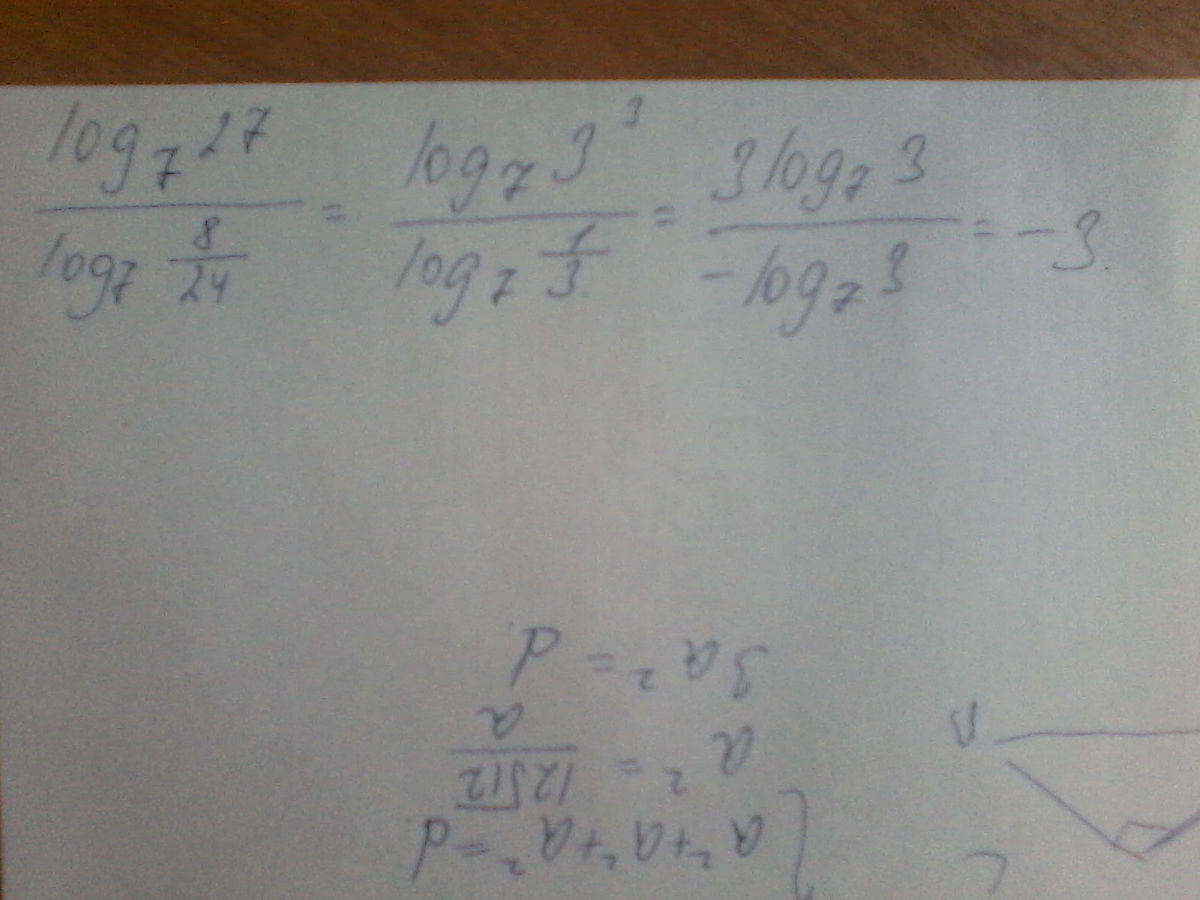 log₇27 / log₇(8/24) = log₇3³ / log₇(1/3) = 3log₇3 / -log₇3 = -3.
a²+a²+a²=d
a² = 12√12 / a
3a² = d